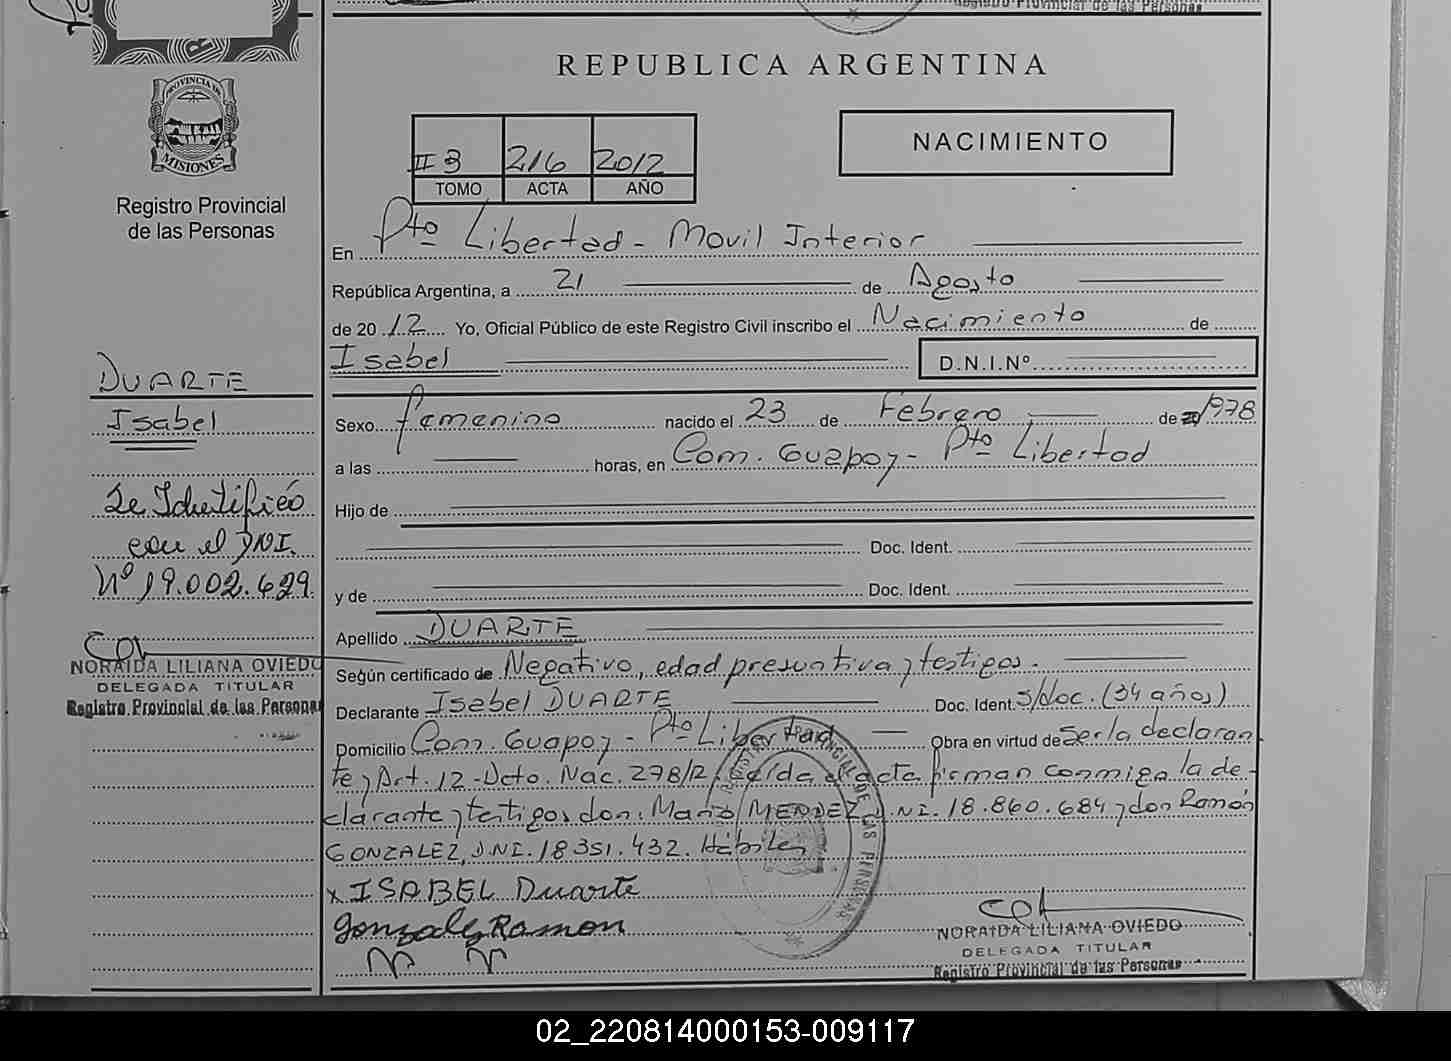 Registro Provincial de las Personas
REPUBLICA ARGENTINA
PROVINCIA DE
MISIONES
Registro Provincial
de las Personas
II 3 216 2012
TOMO ACTA AÑO
NACIMIENTO
En Pto Libertad - Movil Interior
República Argentina, a 21 de Agosto
de 20 12 Yo, Oficial Público de este Registro Civil inscribo el Nacimiento de
Isabel D.N.I.Nº
DUARTE
Isabel
Se Identificó
con el DNI.
Nº 19.002.629.
NORAIDA LILIANA OVIEDO
DELEGADA TITULAR
Registro Provincial de las Personas
Sexo femenino nacido el 23 de Febrero de 1978
a las horas, en Com. Guapoy - Pto Libertad
Hijo de
Doc. Ident.
y de Doc. Ident.
Apellido DUARTE
Según certificado de Negativo, edad presuntiva y testigos.
Declarante Isabel DUARTE Doc. Ident. s/doc. (34 años)
Domicilio Com. Guapoy - Pto Libertad Obra en virtud de ser la declaran
te y Art. 12 - Dcto. Nac. 278/12. Leída el acta firman conmigo la de-
clarante y testigos don: Mario MENDEZ, DNI. 18.860.684 y don Ramón
GONZALEZ, DNI. 18.351.432. Hábiles
x ISABEL Duarte
Gonzalez Ramon
NORAIDA LILIANA OVIEDO
DELEGADA TITULAR
Registro Provincial de las Personas
02_220814000153-009117